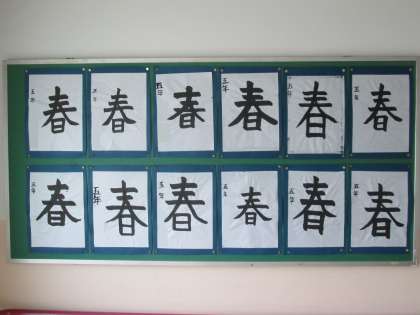 五年 春
五年 春
五年 春
五年 春
五年 春
五年 春
五年 春
五年 春
五年 春
五年 春
五年 春
五年 春